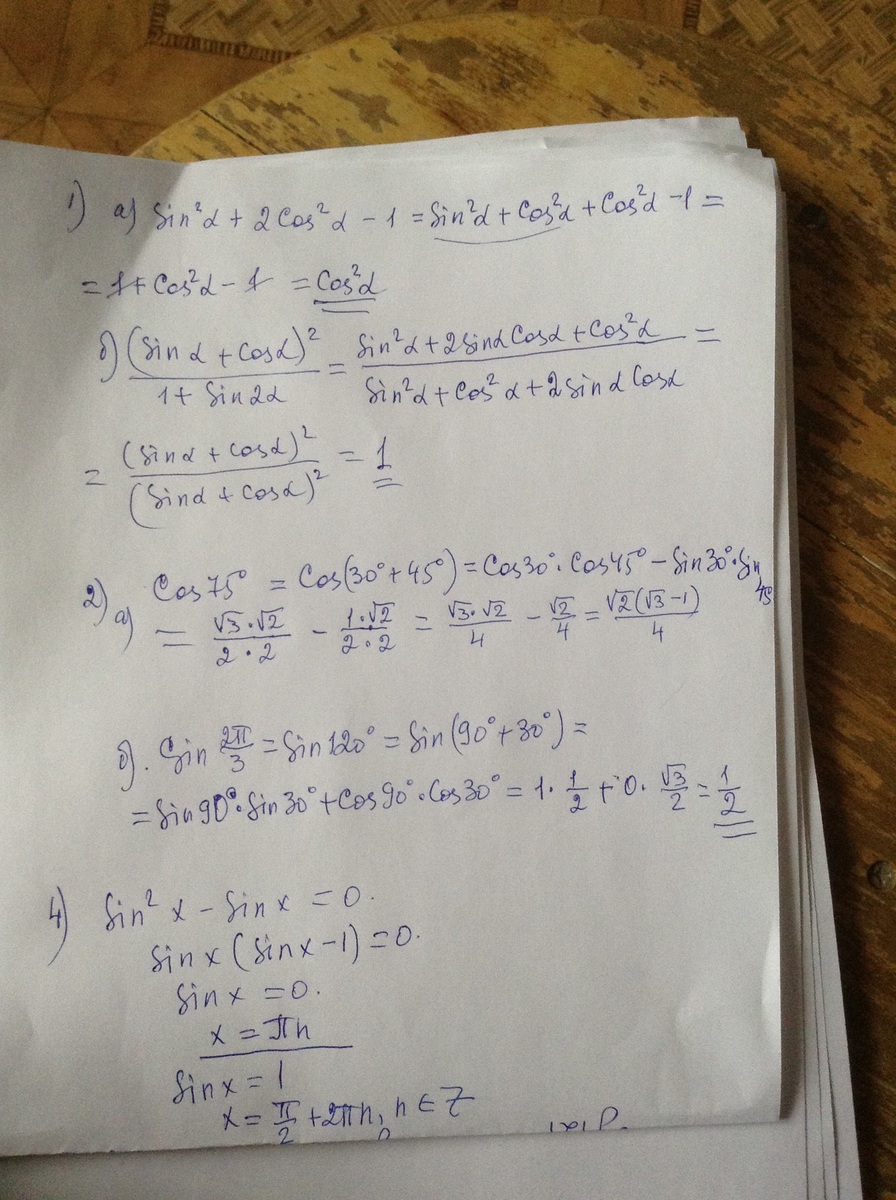 1) a) Sin²α + 2Cos²α - 1 = Sin²α + Cos²α + Cos²α - 1 =
= 1 + Cos²α - 1 = Cos²α
б) (Sin α + Cosα)² / 1 + Sin2α = Sin²α + 2Sinα Cosα + Cos²α / Sin²α + Cos²α + 2Sinα Cosα =
= (Sinα + Cosα)² / (Sinα + Cosα)² = 1
2) a) Cos75° = Cos(30° + 45°) = Cos30° · Cos45° - Sin30° · Sin 45
= √3·√2 / 2·2 - 1·√2 / 2·2 = √3·√2 / 4 - √2 / 4 = √2(√3-1) / 4
б). Sin 2π/3 = Sin120° = Sin(90° + 30°) =
= Sin90° · Sin30° + Cos90° · Cos30° = 1 · 1/2 + 0 · √3/2 = 1/2
4) Sin² x - Sin x = 0.
Sin x (Sin x - 1) = 0.
Sin x = 0.
x = πn
Sin x = 1
x = π/2 + 2πn, n ∈ Z